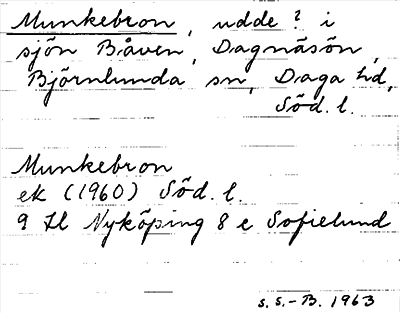 Munkebron, udde? i
sjön Båven, Dagnäsön,
Björnlunda sn, Daga hd,
Söd. l.
Munkebron
ek (1960) Söd. l.
9 H Nyköping 8 e Sofielund
S. S.-B. 1963